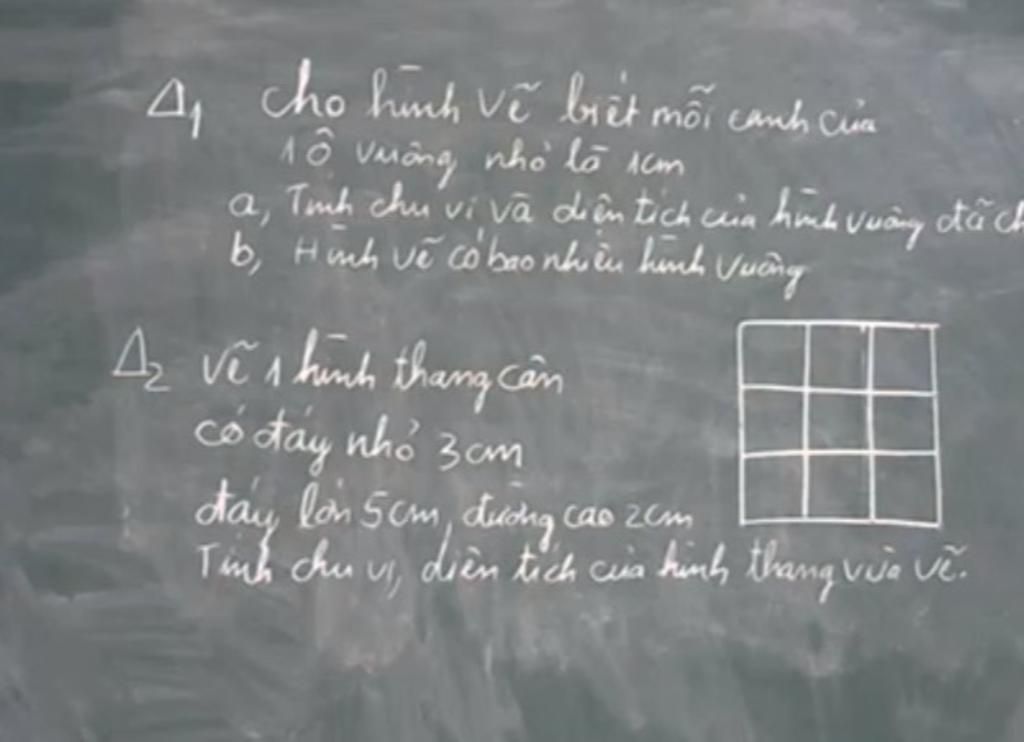 Δ1 Cho hình vẽ biết mỗi cạnh của
1 ô vuông nhỏ là 1cm
a, Tính chu vi và diện tích của hình vuông đã ch
b, Hình vẽ có bao nhiêu hình vuông
Δ2 Vẽ 1 hình thang cân
có đáy nhỏ 3cm
đáy lớn 5cm, đường cao 2cm
Tính chu vi, diện tích của hình thang vừa vẽ.